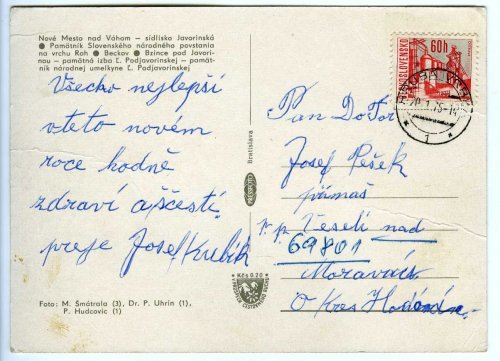 Nové Mesto nad Váhom — sídlisko Javorinská
● Pamätník Slovenského národného povstania
na vrchu Roh ● Beckov ● Bzince pod Javori-
nou — pamätná izba Ľ. Podjavorinskej — pamät-
ník národnej umelkyne Ľ. Podjavorinskej
Všecko nejlepší
vteto novém
roce hodně
zdraví aščestí
preje Josef Kubík
Foto: M. Šmátrala (3), Dr. P. Uhrín (1),
P. Hudcovic (1)
Bratislava
PRESSFOTO
Kčs 0,20
ČESKOSLOVENSKO
60h
Pan Doťor
Josef Pešek
přímas
p. p. Veselí nad
69801
Moravů
O kres Hodonín